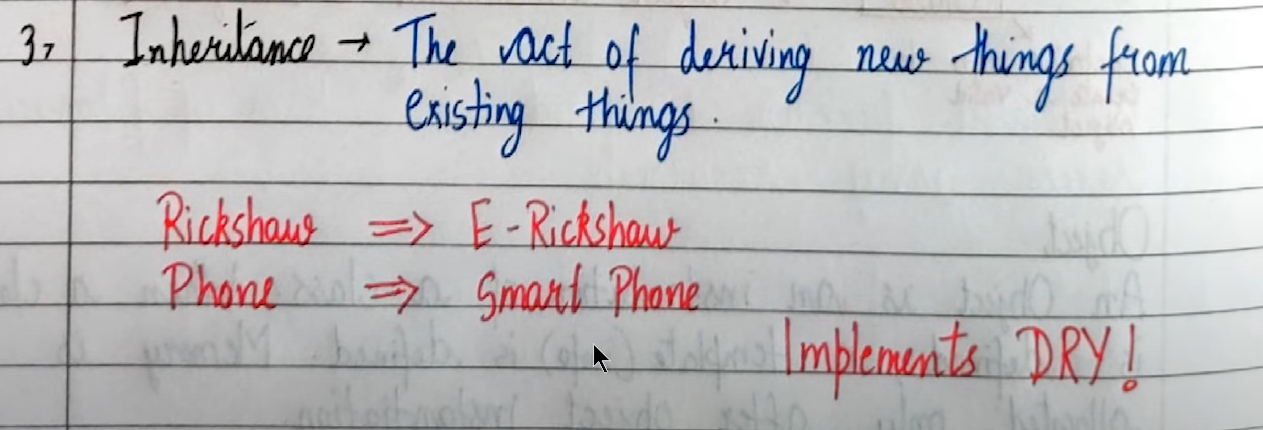 3, Inheritance → The act of deriving new things from
existing things.
Rickshaw => E-Rickshaw
Phone => Smart Phone
Implements DRY!